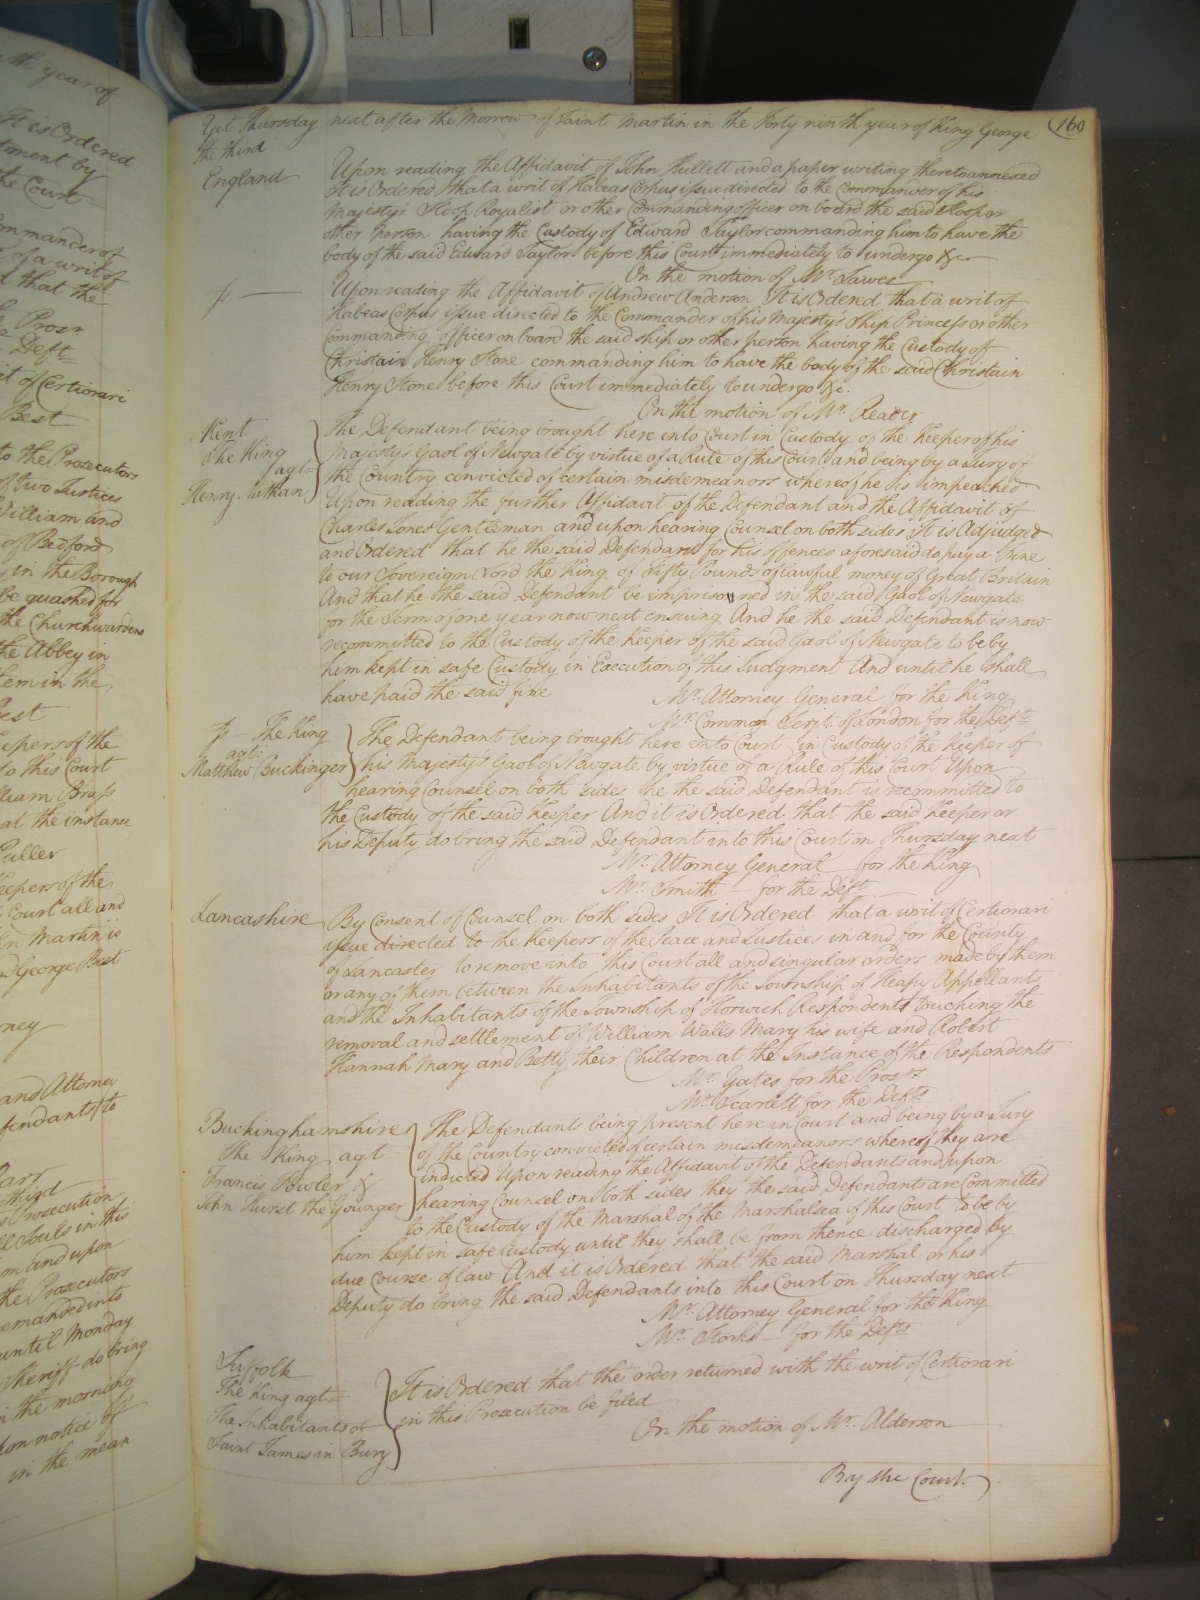 the year of
It is Ordered
tment by
the Court
ommander of
of a writ of
d that the
Prosr
Deft
it of Certiorari
Best
to the Prosecutors
of two Justices
William and
of Bedford
in the Borough
be quashed for
the Churchwardens
the Abbey in
tem in the
Best
eepers of the
to this Court
lliam Brass
at the instance
Fuller
eepers of the
Court all and
en Martin is
George Best
rney
and Attorney
fendants to
third
Prosecution
ll Souls in this
on and upon
the Prosecutors
emanded into
until Monday
Sheriff do bring
in the morning
pon notice of
in the mean
160
Yet Thursday next after the Morrow of Saint Martin in the Forty ninth year of King George
the third
England
Upon reading the Affidavit of John Hullett and a paper writing thereto annexed
It is Ordered that a writ of Habeas Corpus issue directed to the Commander of his
Majesty's Sloop Royalist or other Commanding officer on board the said Sloop or
other person having the Custody of Edward Taylor commanding him to have the
body of the said Edward Taylor before this Court immediately to undergo &c
On the motion of Mr. Lawes
Upon reading the Affidavit of Andrew Anderson It is Ordered that a writ of
Habeas Corpus issue directed to the Commander of his Majesty's Ship Princess or other
Commanding officer on board the said ship or other person having the Custody of
Christain Henry Stone commanding him to have the body of the said Christain
Henry Stone before this Court immediately to undergo &c.
On the motion of Mr. Reader
Kent
The King
agt
Henry Nathan
The Defendant being brought here into Court in Custody of the Keeper of his
Majesty's Gaol of Newgate by virtue of a Rule of this Court and being by a Jury of
the Country convicted of certain misdemeanors whereof he is impeached
Upon reading the further Affidavit of the Defendant and the Affidavit of
Charles Jones Gentleman and upon hearing Counsel on both sides It is Adjudged
and Ordered that he the said Defendant for his offences aforesaid do pay a Fine
to our Sovereign Lord the King of Fifty Pounds of lawful money of Great Britain
And that he the said Defendant be imprisonned in the said Gaol of Newgate
for the Term of one year now next ensuing And he the said Defendant is now
recommitted to the Custody of the Keeper of the said Gaol of Newgate to be by
him kept in safe Custody in Execution of this Judgment And until he shall
have paid the said fine
Mr. Attorney General for the King
Mr. Common Serjt. of London for the Deft
The King
agt.
Matthew Buckinger
The Defendant being brought here into Court in Custody of the Keeper of
his Majesty's Gaol of Newgate by virtue of a Rule of this Court Upon
hearing Counsel on both sides he the said Defendant is recommitted to
the Custody of the said Keeper And it is Ordered that the said Keeper or
his Deputy do bring the said Defendant into this Court on Thursday next
Mr. Attorney General for the King
Mr. Smith for the Deft
Lancashire
By Consent of Counsel on both sides It is Ordered that a writ of Certiorari
issue directed to the Keepers of the Peace and Justices in and for the County
of Lancaster to remove into this Court all and singular orders made by them
or any of them between the Inhabitants of the Township of Heapy Appellants
and the Inhabitants of the Township of Horwich Respondents touching the
removal and settlement of William Walls Mary his wife and Robert
Hannah Mary and Betty their Children at the Instance of the Respondents
Mr. Yates for the Prosrs
Mr. Scarlett for the Defts
Buckinghamshire
The King agt
Francis Fowler &
John Hurst the Younger
The Defendants being present here in Court and being by a Jury
of the Country convicted of certain misdemeanors whereof they are
indicted Upon reading the Affidavit of the Defendants and upon
hearing Counsel on both sides they the said Defendants are Committed
to the Custody of the Marshal of the Marshalsea of this Court to be by
him kept in safe Custody until they shall be from thence discharged by
due Course of law And it is Ordered that the said Marshal or his
Deputy do bring the said Defendants into this Court on Thursday next
Mr. Attorney General for the King
Mr. Storks for the Defts
Suffolk
The King agt
The Inhabitants of
Saint James in Bury
It is Ordered that the order returned with the writ of Certiorari
in this Prosecution be filed
On the motion of Mr. Alderson
By the Court.